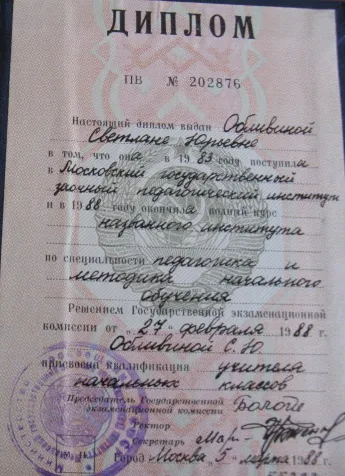 ДИПЛОМ
ПВ № 202876
Настоящий диплом выдан Обливиной
Светлане Юрьевне
в том, что она в 1983 году поступила
в Московский государственный
заочный педагогический институт
и в 1988 году окончила полный курс
названного института
по специальности педагогика и
методика начального
обучения
Решением Государственной экзаменационной
комиссии от „27“ февраля 1988 г.
Обливиной С. Ю
присвоена квалификация учителя
начальных классов
Председатель Государственной
экзаменационной комиссии
Ректор
Секретарь
Город Москва 5 марта 1988 г.